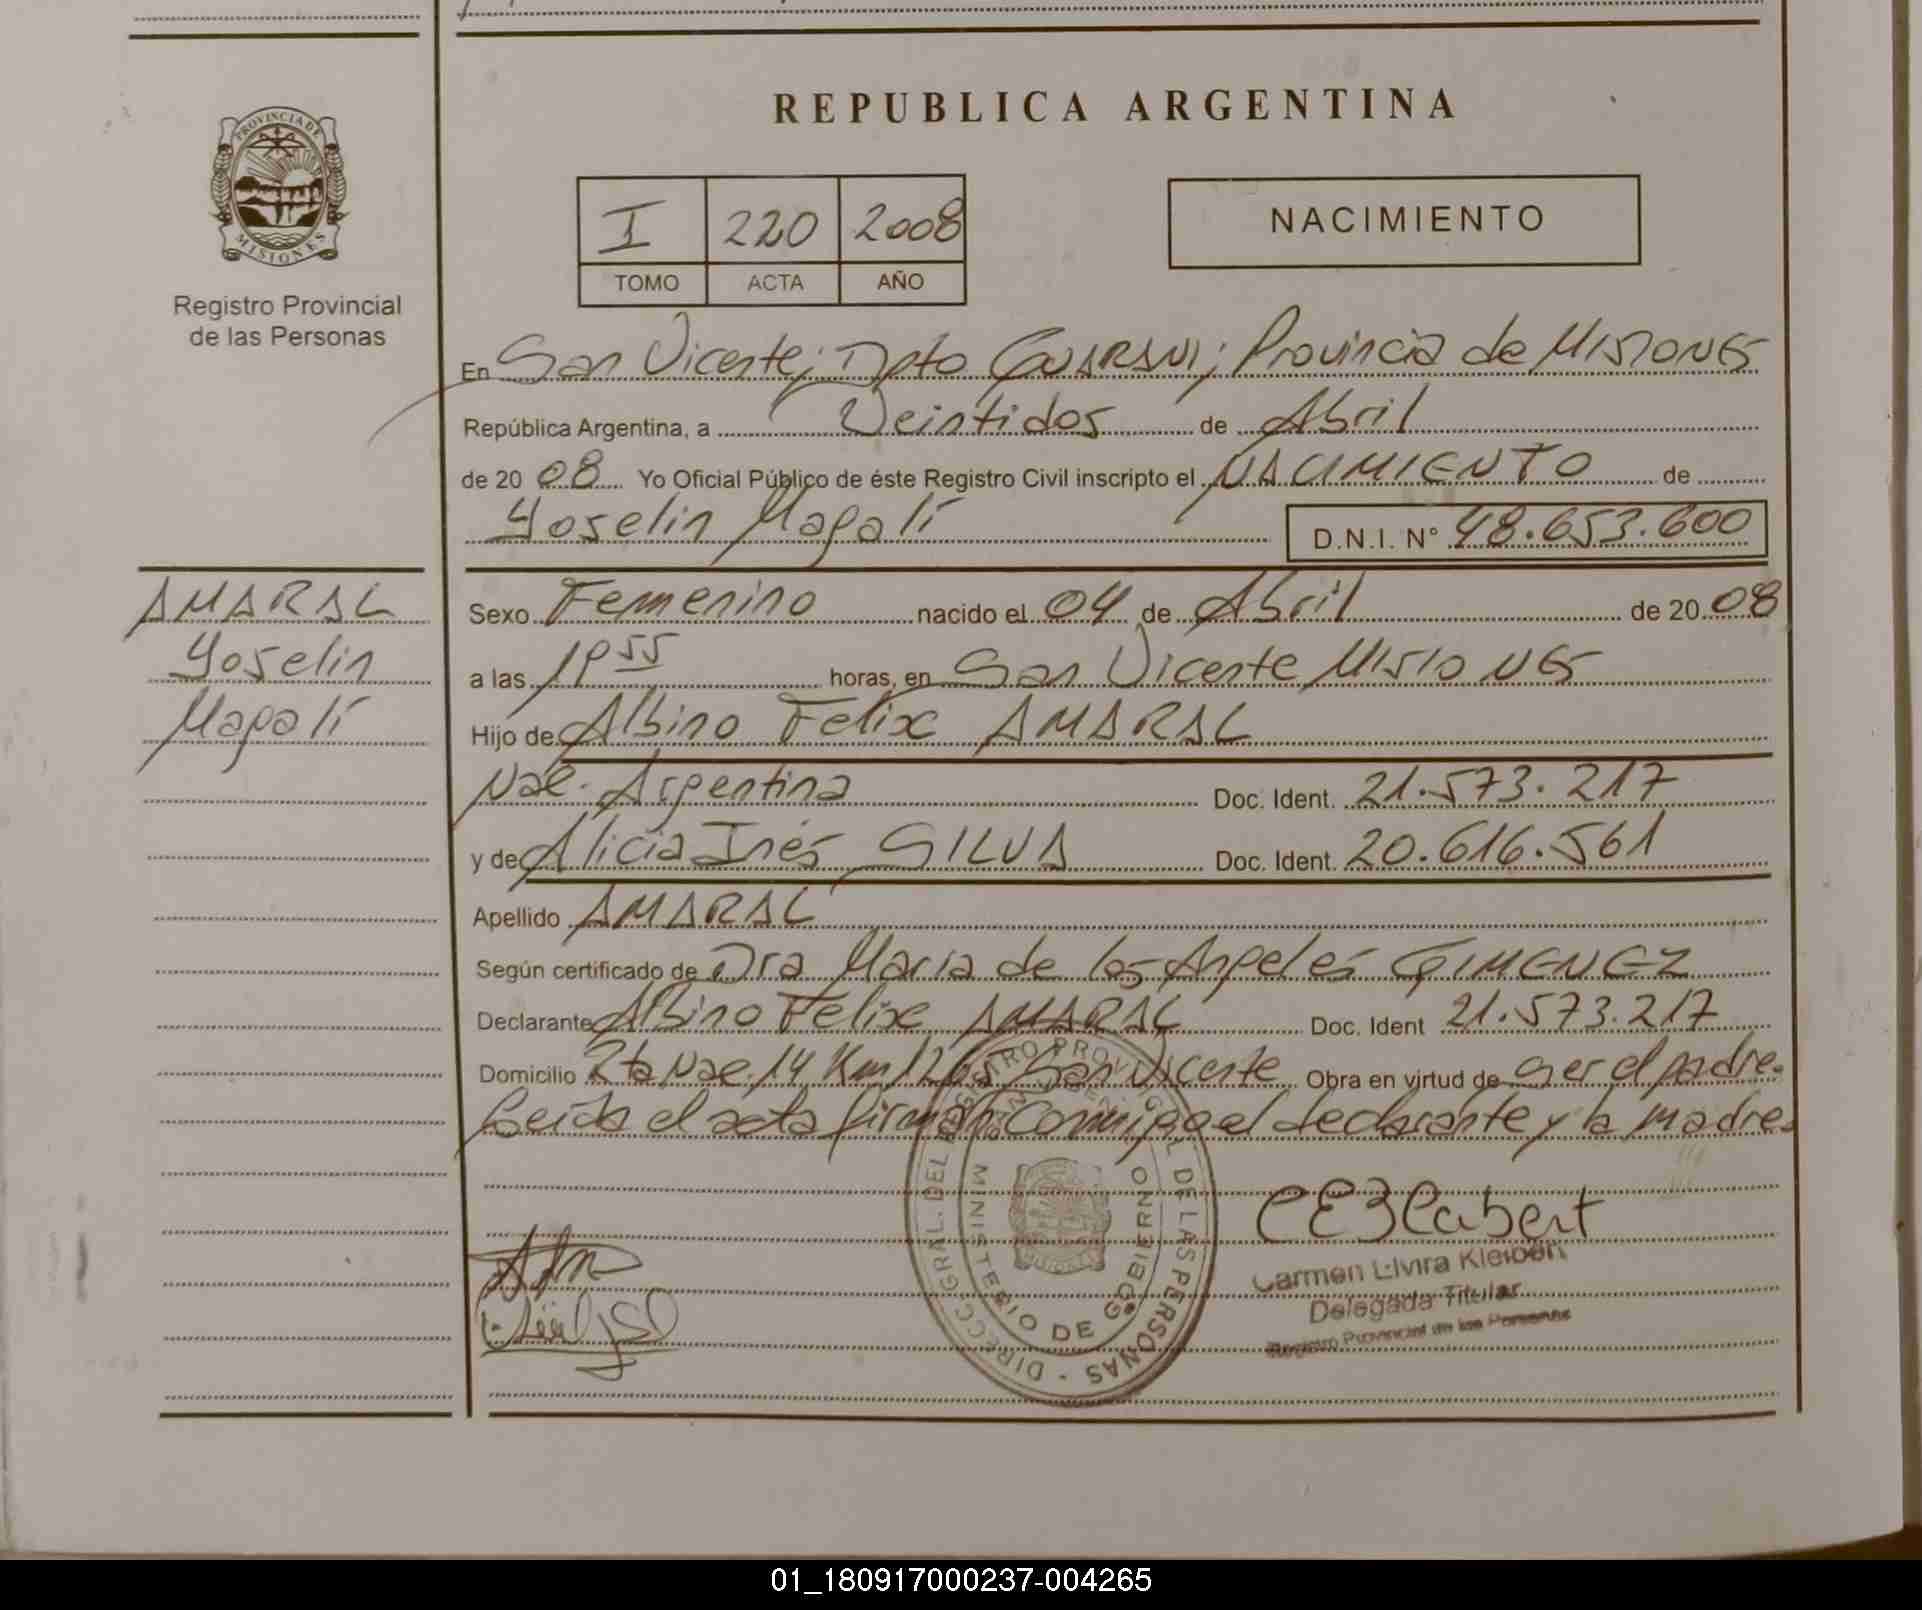 PROVINCIA DE
MISIONES
Registro Provincial
de las Personas
REPUBLICA ARGENTINA
I 220 2008
TOMO ACTA AÑO
NACIMIENTO
En San Vicente; Dpto GUARANI; Provincia de MISIONES
República Argentina, a Veintidos de Abril
de 20 08 Yo Oficial Público de éste Registro Civil inscripto el NACIMIENTO de
Yoselin Magalí D.N.I. N° 48.653.600
AMARAL
Yoselin
Magalí
Sexo Femenino nacido el 04 de Abril de 20 08
a las 19 55 horas, en San Vicente MISIONES
Hijo de Albino Felix AMARAL
Nac. Argentina Doc. Ident. 21.573.217
y de Alicia Inés SILVA Doc. Ident. 20.616.561
Apellido AMARAL
Según certificado de Dra Maria de los Angeles GIMENEZ
Declarante Albino Felix AMARAL Doc. Ident 21.573.217
Domicilio Rta Nac. 14 Km 1265 San Vicente Obra en virtud de ser el padre.
Leida el acta firman conmigo el declarante y la madre.
DIRECC. GRAL. DEL REGISTRO PROVINCIAL DE LAS PERSONAS
MINISTERIO DE GOBIERNO
MISIONES
Carmen Elvira Kleibert
Delegada Titular
Registro Provincial de las Personas
01_180917000237-004265